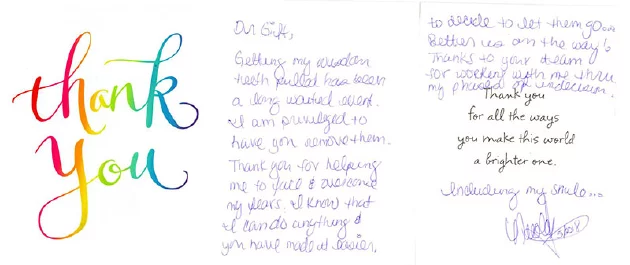 thank
you
Dr Gift,
Getting my wisdom
teeth pulled has been
a long waited event.
I am privileged to
have you remove them.
Thank you for helping
me to face & overcome
my fears. I know that
I can do anything &
you have made it easier.
to decide to let them go...
Better us on the way!
Thanks to your team
for working with me thru
my phases of indecision.
Thank you
for all the ways
you make this world
a brighter one.
Including my smile...